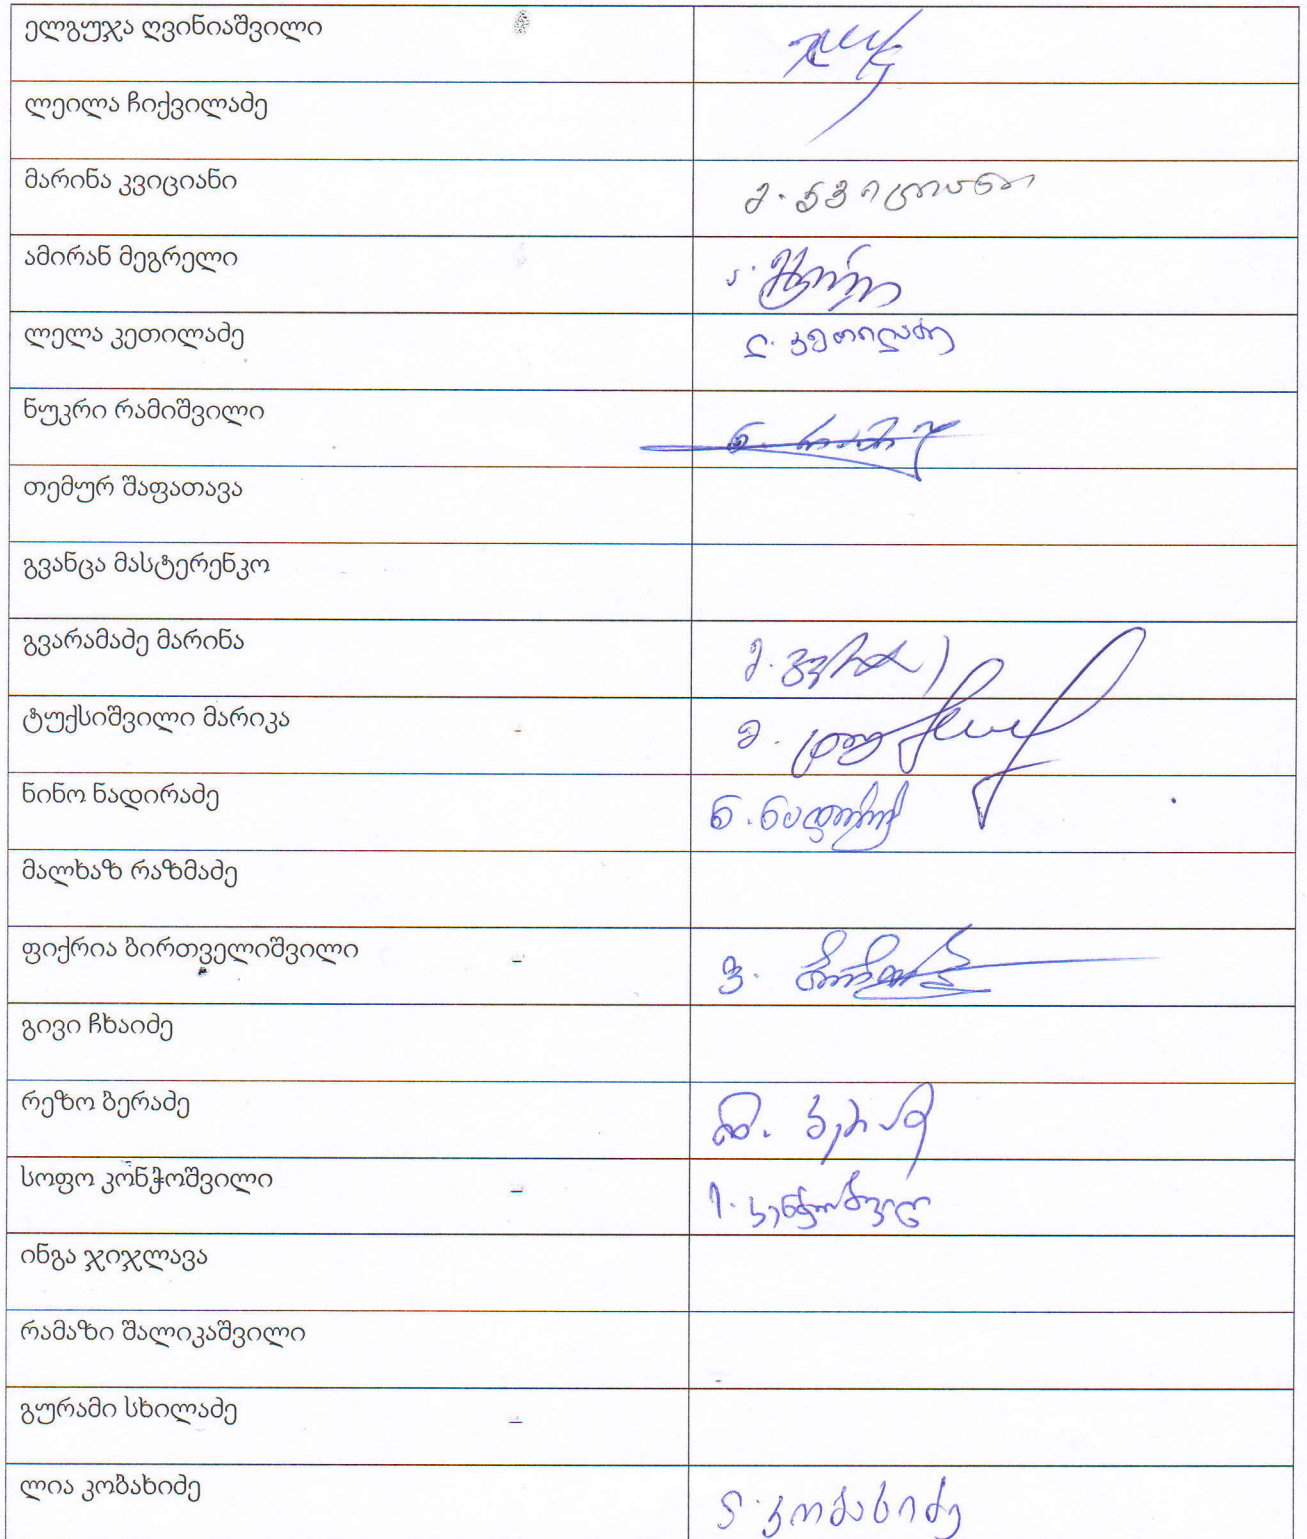 ელგუჯა ღვინიაშვილი
ლეილა ჩიქვილაძე
მარინა კვიციანი
მ. კვიციანი
ამირან მეგრელი
ლელა კეთილაძე
ლ. კეთილაძე
ნუკრი რამიშვილი
თემურ შაფათავა
გვანცა მასტერენკო
გვარამაძე მარინა
ტუქსიშვილი მარიკა
ნინო ნადირაძე
მალხაზ რაზმაძე
ფიქრია ბირთველიშვილი
გივი ჩხაიძე
რეზო ბერაძე
სოფო კონჭოშვილი
ინგა ჯიჯლავა
რამაზი შალიკაშვილი
გურამი სხილაძე
ლია კობახიძე
ლ. კობახიძე